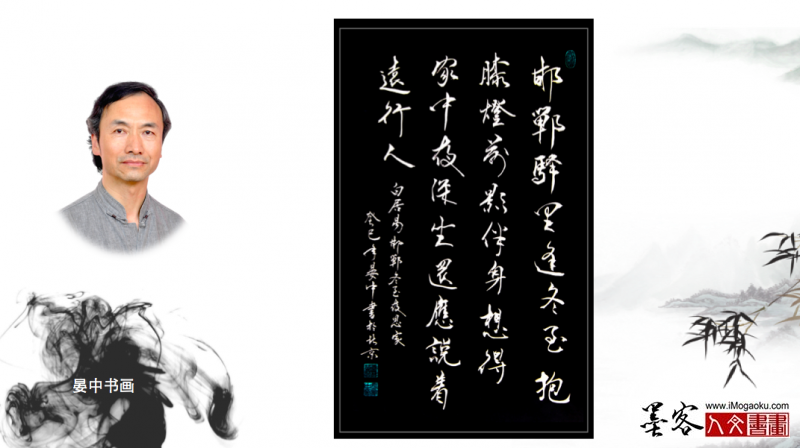 邯鄲驛里逢冬至抱
膝燈前影伴身想得
家中夜深坐還應說著
遠行人
白居易邯鄲冬至夜思家
癸巳年晏中書於北京
晏中书画
墨客
www.iMogaoku.com
人文書畫